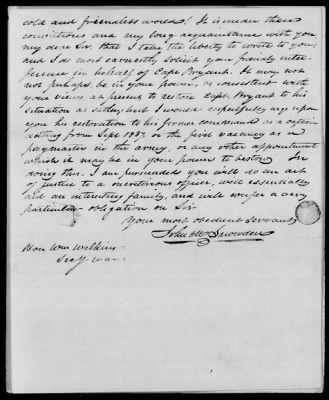 cold and friendless world! It is under these
convictions and my long acquaintance with you
my dear Sir, that I take the liberty to write to you,
and I do most earnestly solicit your friendly inter-
ference in behalf of Capt. Bryant. It may not
not perhaps, be in your power, or consistent with
your views at present to restore Capt. Bryant to his
situation as sutler, but I would respectfully urge upon
you his restoration to his former command as a captain
dating from Sept 1837, or the first vacancy as a
paymaster in the army, or any other appointment
which it may be in your power to bestow. In
doing this, I am persuaded you will do an act
of justice to a meritorious officer, will essentially
aid an interesting family, and will confer a very
particular obligation on Sir
Your most obedient Servant
John M. Snowden
Hon Wm Wilkins
Secy war.